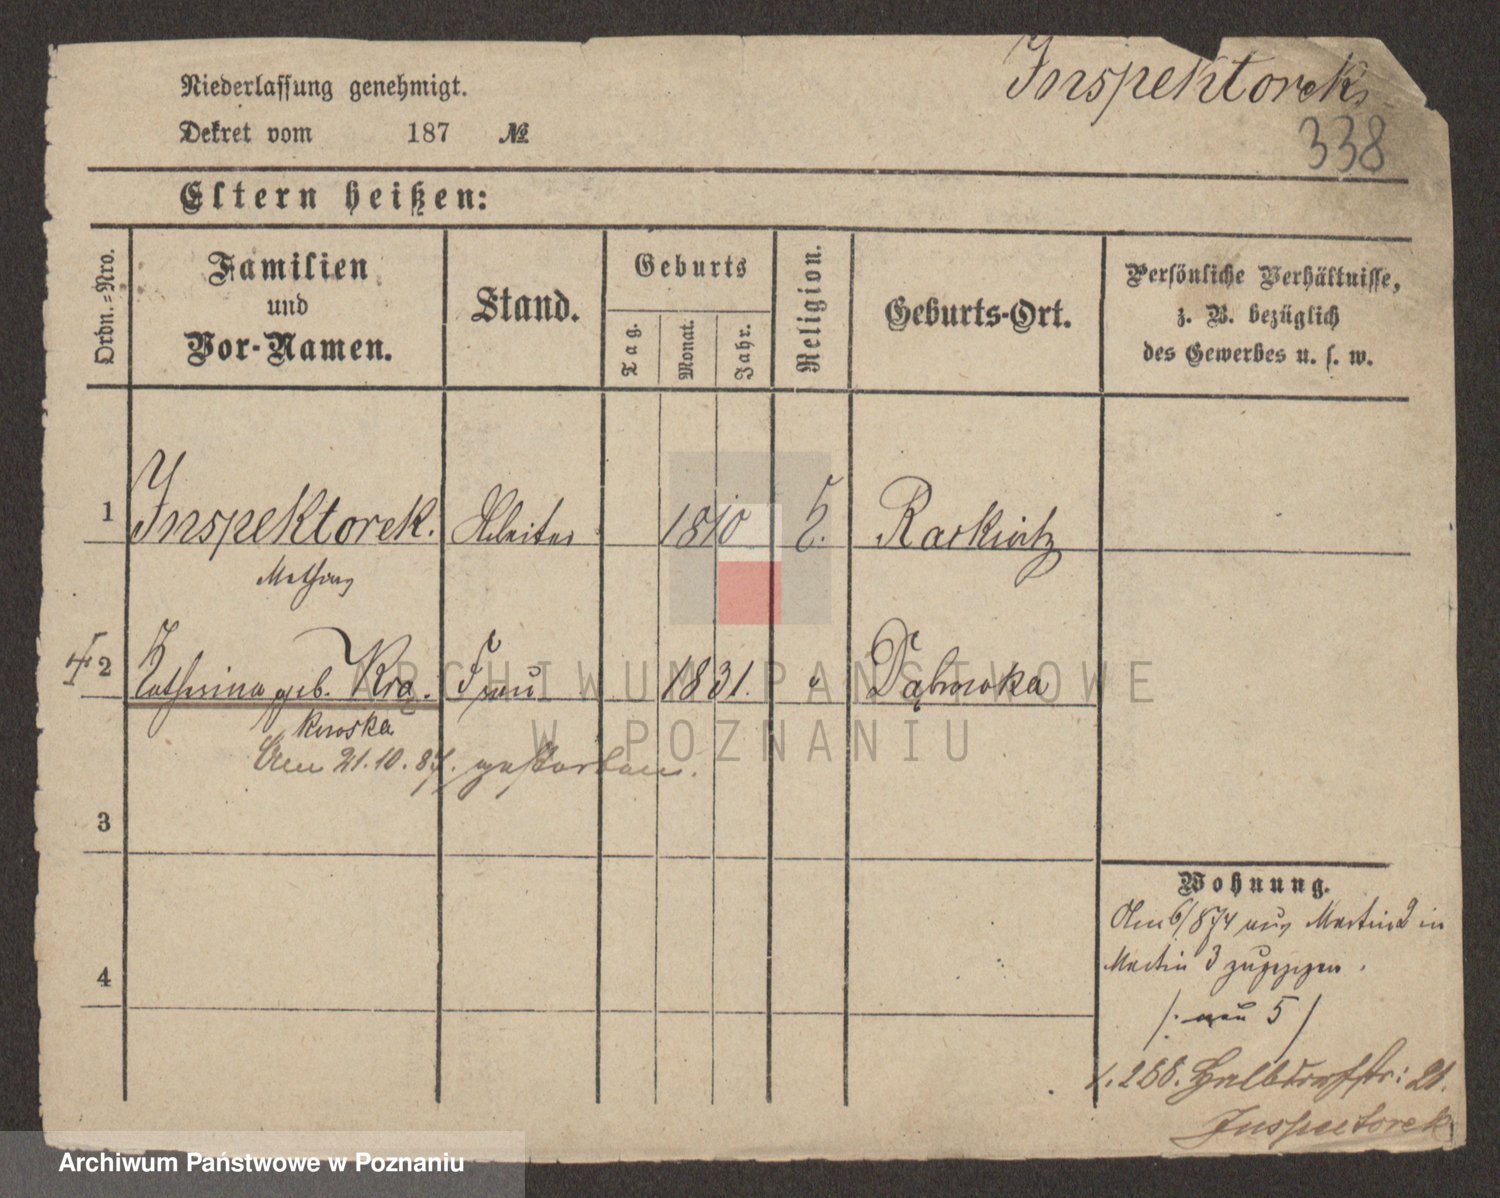 Inspektorek
338
Niederlassung genehmigt.
Dekret vom 187 №
Eltern heißen:
Ordn.=Nro.
Familien
und
Vor-Namen.
Stand.
Geburts
Tag.
Monat.
Jahr.
Religion.
Geburts-Ort.
Persönliche Verhältnisse,
z. B. bezüglich
des Gewerbes u. s. w.
1 Inspektorek. Arbeiter 1810
Mathias
2 Catharina geb. Kra. Frau 1831. " Dąbrowka
kowska
Am 21.10.87. gestorben.
3
4
Wohnung.
6/874 aus Martin 2 in
Martin 3 zugezogen.
/. neu 5 /
Halbdorfstr: 21.
Inspectorek
ARCHIWUM PAŃSTWOWE
W POZNANIU
Archiwum Państwowe w Poznaniu